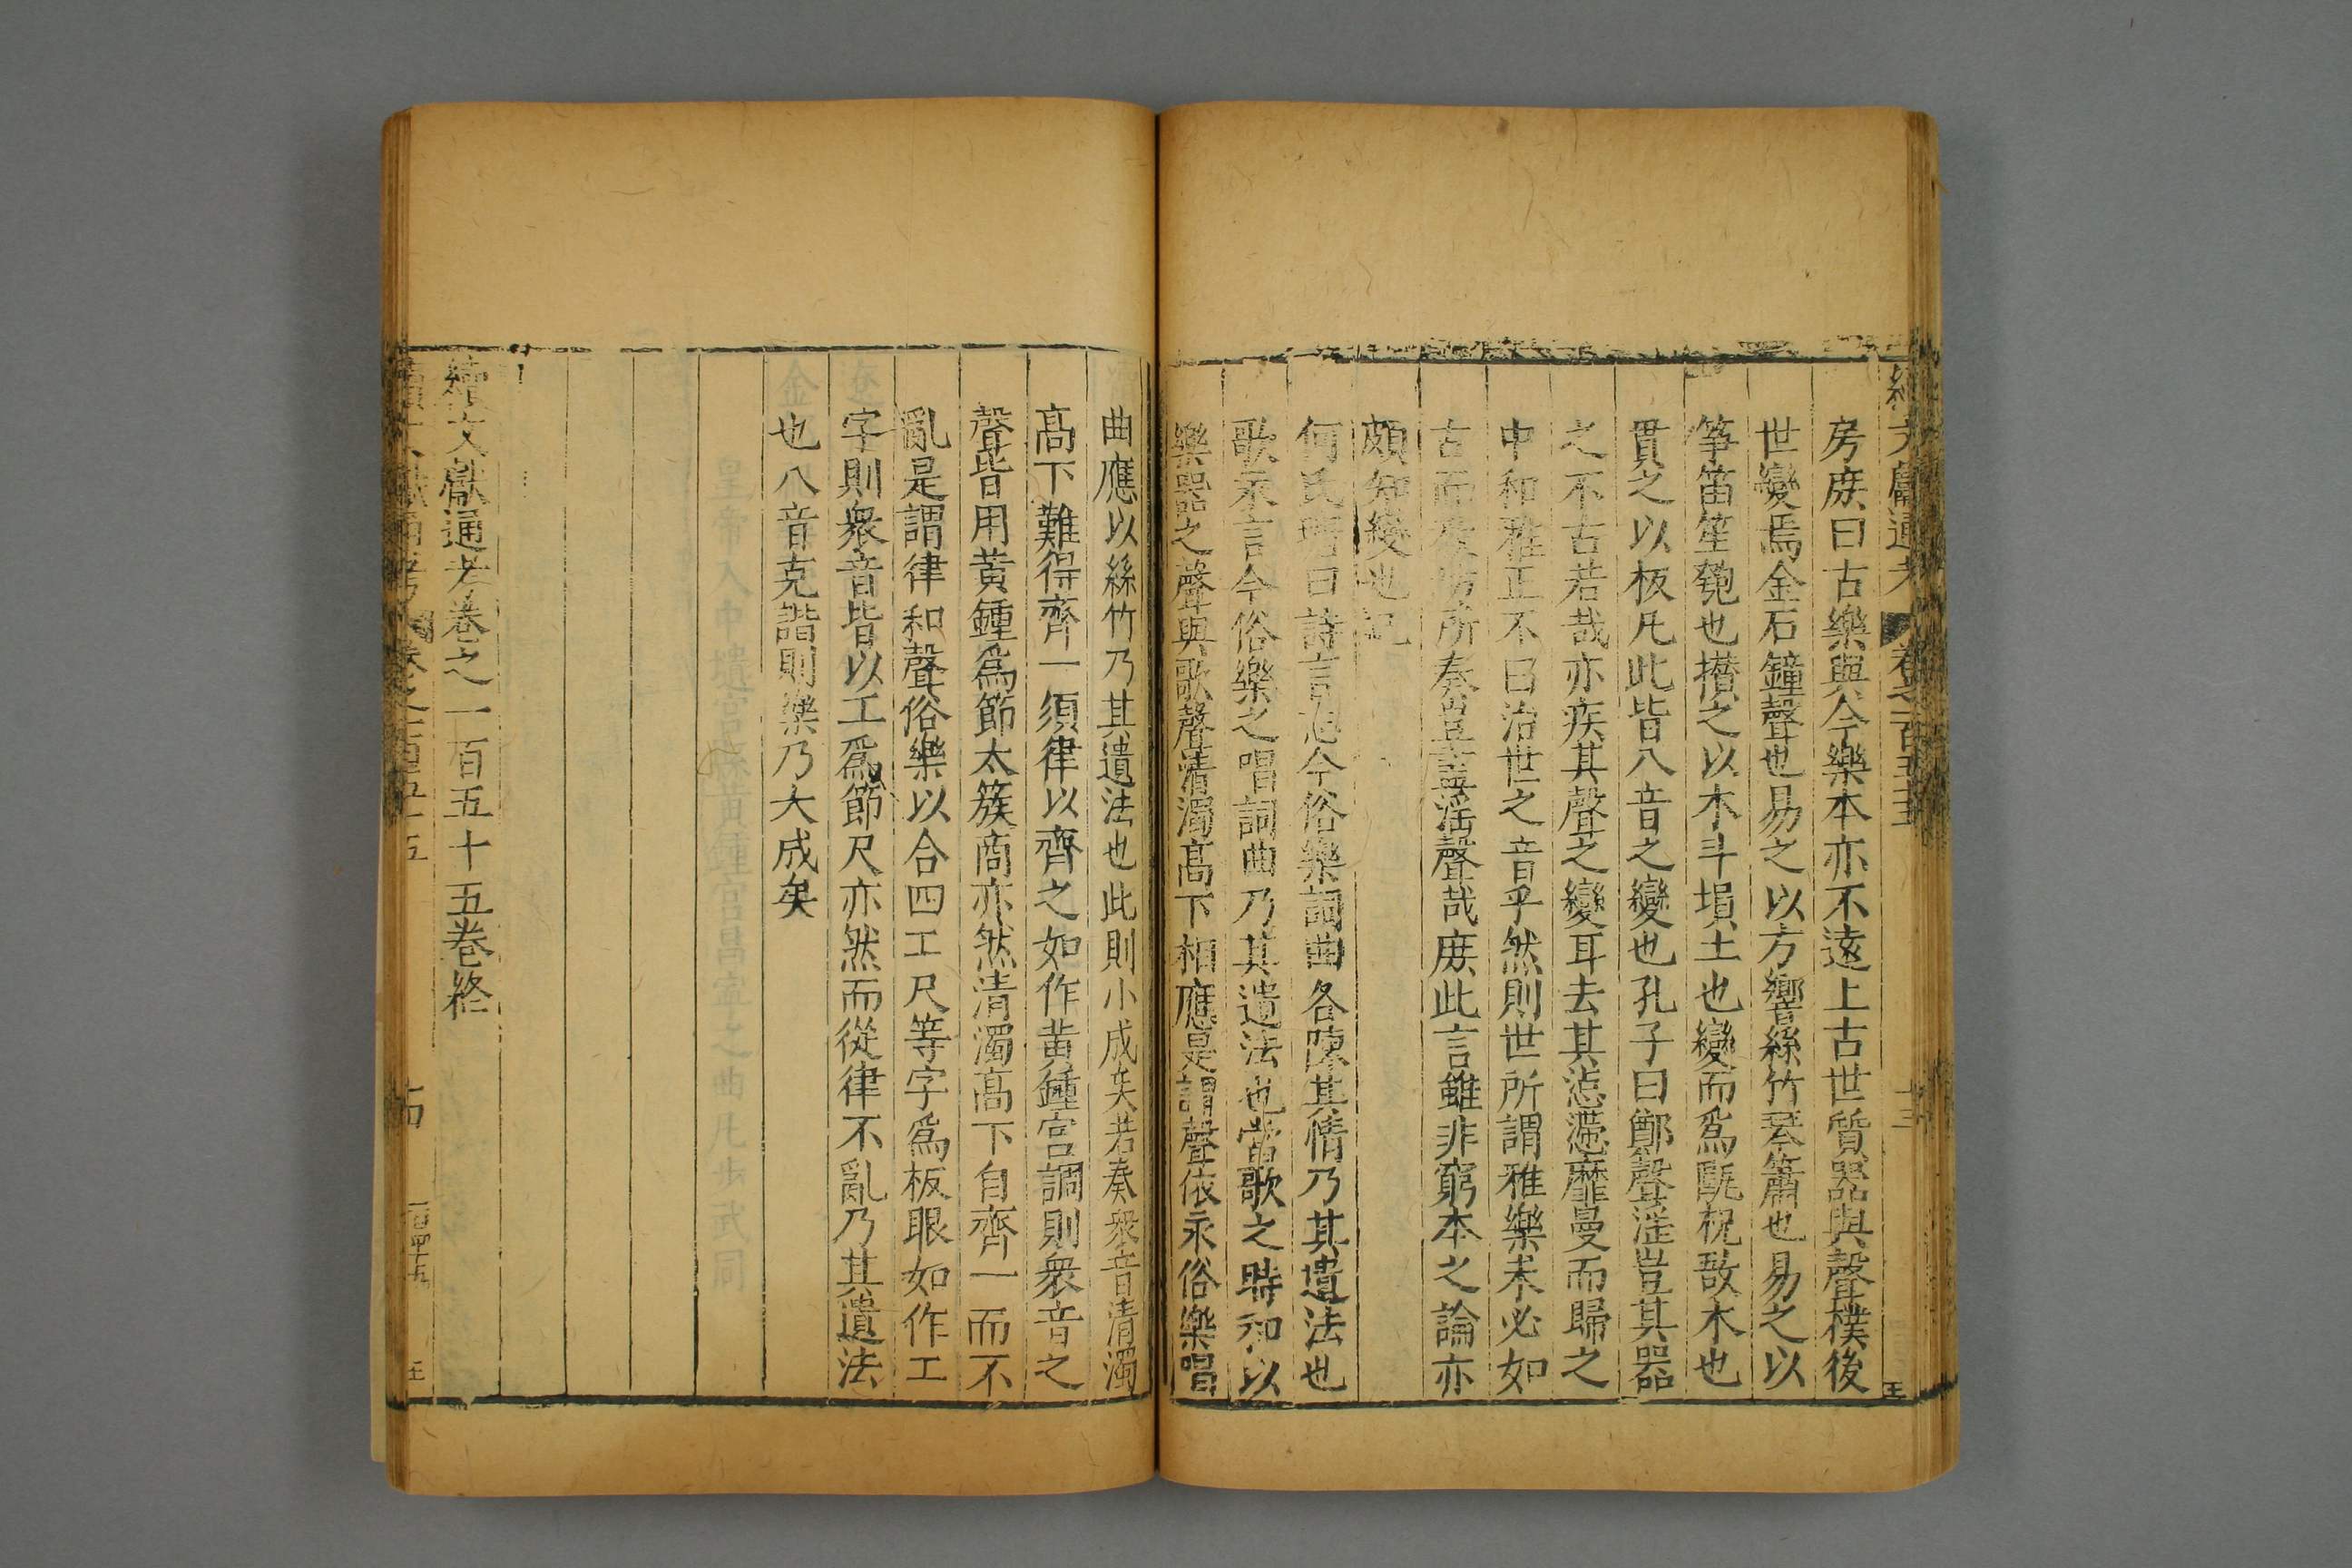 續文獻通考 卷之一百五十五
房庶曰古樂與今樂本亦不遠上古世質器與聲樸後
世變焉金石鐘聲也易之以方響絲竹琴簫也易之以
筝笛笙匏也攅之以木斗塤土也變而爲甌柷敔木也
貫之以板凡此皆八音之變也孔子曰鄭聲淫豈其器
之不古若哉亦疾其聲之變耳去其惉懘靡曼而歸之
中和雅正不曰治世之音乎然則世所謂雅樂未必如
古而敎坊所奏豈盡淫聲哉庶此言雖非窮本之論亦
頗知變也
何氏瑭曰詩言志今俗樂詞曲各陳其情乃其遺法也
歌永言今俗樂之唱詞曲乃其遺法也當歌之時和以
樂器之聲與歌聲清濁髙下相應是謂聲依永俗樂唱
曲應以絲竹乃其遺法也此則小成矣若奏衆音清濁
髙下難得齊一須律以齊之如作黄鍾宫調則衆音之
聲皆用黄鍾爲節太簇商亦然清濁髙下自齊一而不
亂是謂律和聲俗樂以合四工尺等字爲板眼如作工
字則衆音皆以工爲節尺亦然而從律不亂乃其遺法
也八音克諧則樂乃大成矣
續文獻通考卷之一百五十五卷終